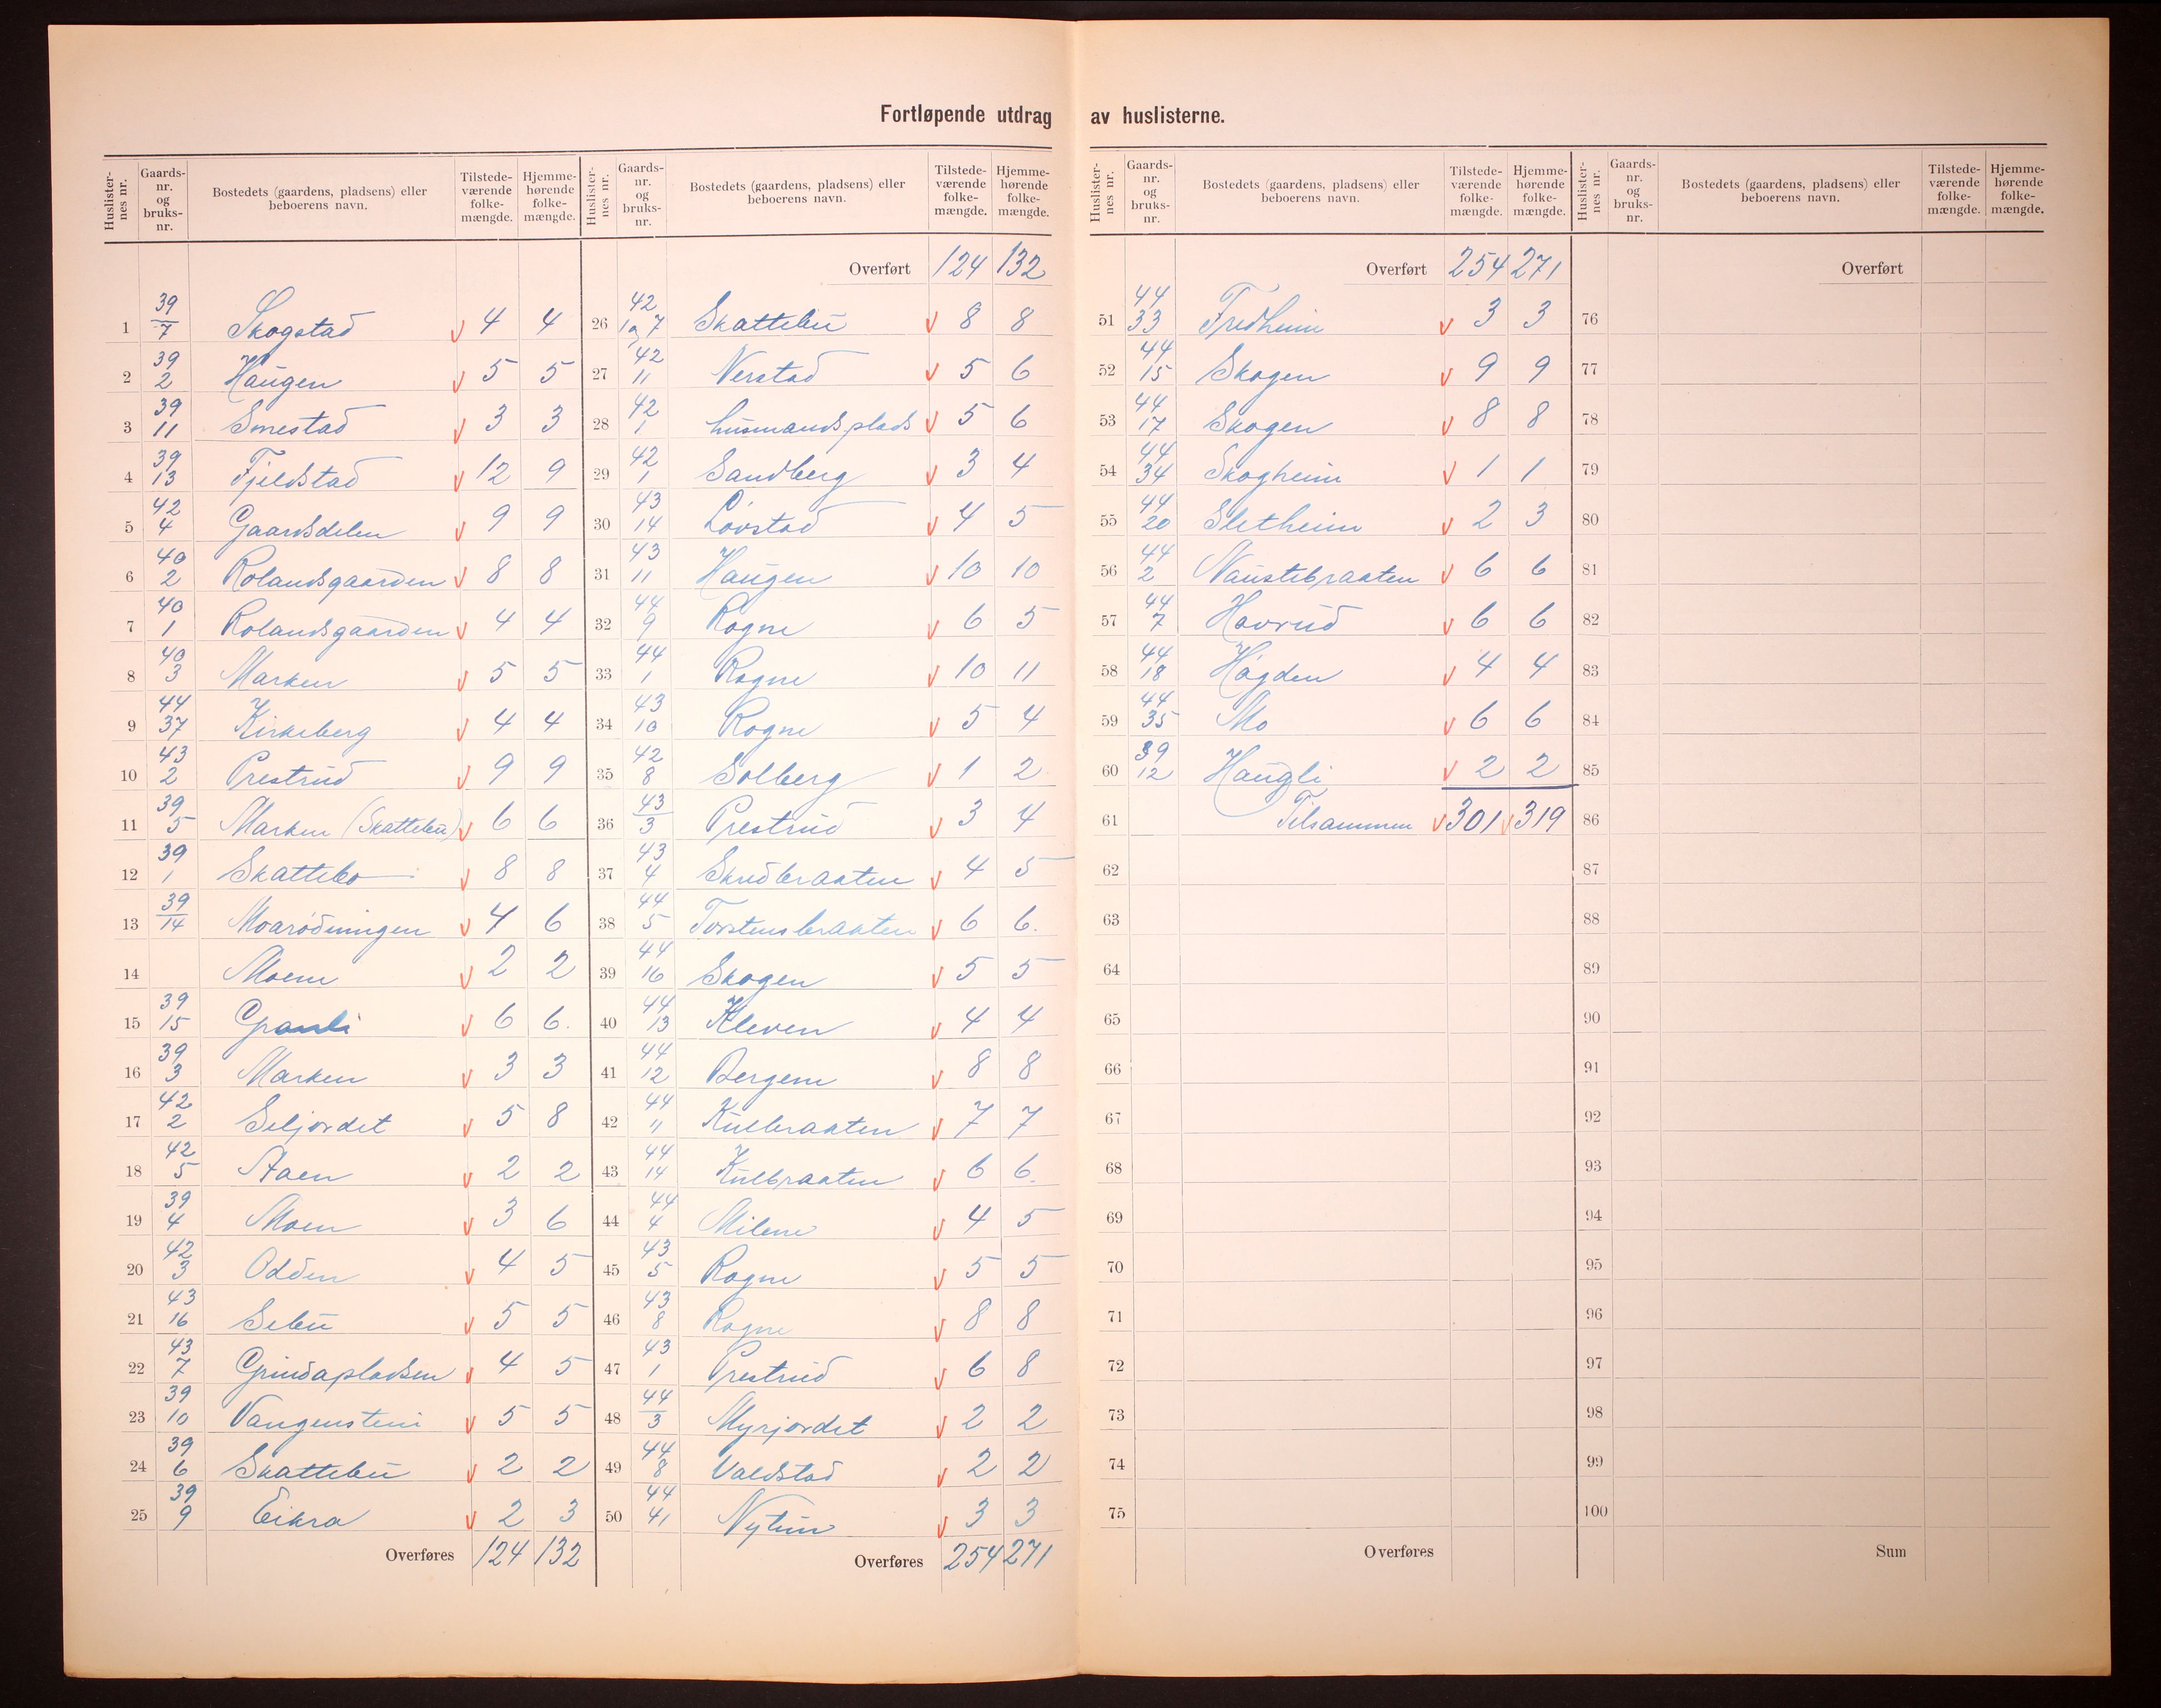 Fortløpende utdrag av huslisterne.
Huslister-nes nr. | Gaards-nr. og bruks-nr. | Bostedets (gaardens, pladsens) eller beboerens navn. | Tilstede-værende folke-mængde. | Hjemme-hørende folke-mængde.
1 39/7 Skogstad v 4 4
2 39/2 Haugen v 5 5
3 39/11 Smestad v 3 3
4 39/13 Fjeldstad v 12 9
5 42/4 Gaardsdelen v 9 9
6 40/2 Rolandsgaarden v 8 8
7 40/1 Rolandsgaarden v 4 4
8 40/3 Marken v 5 5
9 44/37 Kirkeberg v 4 4
10 43/2 Prestrud v 9 9
11 39/5 Marken (Skattebu) v 6 6
12 39/1 Skattebo v 8 8
13 39/14 Moarødningen v 4 6
14 Moem v 2 2
15 39/15 Granli v 6 6.
16 39/3 Marken v 3 3
17 42/2 Seljordet v 5 8
18 42/5 v 2 2
19 39/4 Moen v 3 6
20 42/3 Odden v 4 5
21 43/16 Sebu v 5 5
22 43/7 Grindapladsen v 4 5
23 39/10 Vangenstein v 5 5
24 39/6 Skattebu v 2 2
25 39/9 Eikra v 2 3
Overføres 124 132
Huslister-nes nr. | Gaards-nr. og bruks-nr. | Bostedets (gaardens, pladsens) eller beboerens navn. | Tilstede-værende folke-mængde. | Hjemme-hørende folke-mængde.
Overført 124 132
26 42/1 a 7 Skattebu v 8 8
27 42/11 Nerstad v 5 6
28 42/1 husmandsplads v 5 6
29 42/1 Sandberg v 3 4
30 43/14 Lovstad v 4 5
31 43/11 Haugen v 10 10
32 44/9 Rogne v 6 5
33 44/1 Rogne v 10 11
34 43/10 Rogne v 5 4
35 42/8 Solberg v 1 2
36 43/3 Prestrud v 3 4
37 43/4 Skudbraaten v 4 5
38 44/5 Torstensbraaten v 6 6.
39 44/16 Skogen v 5 5
40 44/13 Kleven v 4 4
41 44/12 Bergene v 8 8
42 44/11 Kulbraaten v 7 7
43 44/14 Kulbraaten v 6 6.
44 44/4 Milene v 4 5
45 43/5 Rogne v 5 5
46 43/8 Rogne v 8 8
47 43/1 Prestrud v 6 8
48 44/3 Myrjordet v 2 2
49 44/8 Valdstad v 2 2
50 44/41 Nytun v 3 3
Overføres 254 271
Huslister-nes nr. | Gaards-nr. og bruks-nr. | Bostedets (gaardens, pladsens) eller beboerens navn. | Tilstede-værende folke-mængde. | Hjemme-hørende folke-mængde.
Overført 254 271
51 44/33 Fredheim v 3 3
52 44/15 Skogen v 9 9
53 44/17 Skogen v 8 8
54 44/34 Skogheim v 1 1
55 44/20 Sletheim v 2 3
56 44/2 Naustebraaten v 6 6
57 44/7 Hovrud v 6 6
58 44/18 Høgden v 4 4
59 44/35 Mo v 6 6
60 39/12 Haugli v 2 2
61 Tilsammen v 301 v 319
62
63
64
65
66
67
68
69
70
71
72
73
74
75
Overføres
Huslister-nes nr. | Gaards-nr. og bruks-nr. | Bostedets (gaardens, pladsens) eller beboerens navn. | Tilstede-værende folke-mængde. | Hjemme-hørende folke-mængde.
Overført
76
77
78
79
80
81
82
83
84
85
86
87
88
89
90
91
92
93
94
95
96
97
98
99
100
Sum